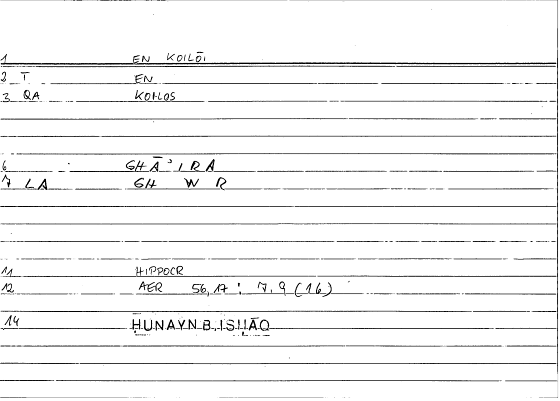 1 EN KOILŌI
2 T EN
3 QA KOILOS
6 GHĀʾIRA
7 LA GH W R
11 HIPPOCR
12 AER 56,17 : 7,9 (16)
14 ḤUNAYN B. ISḤĀQ